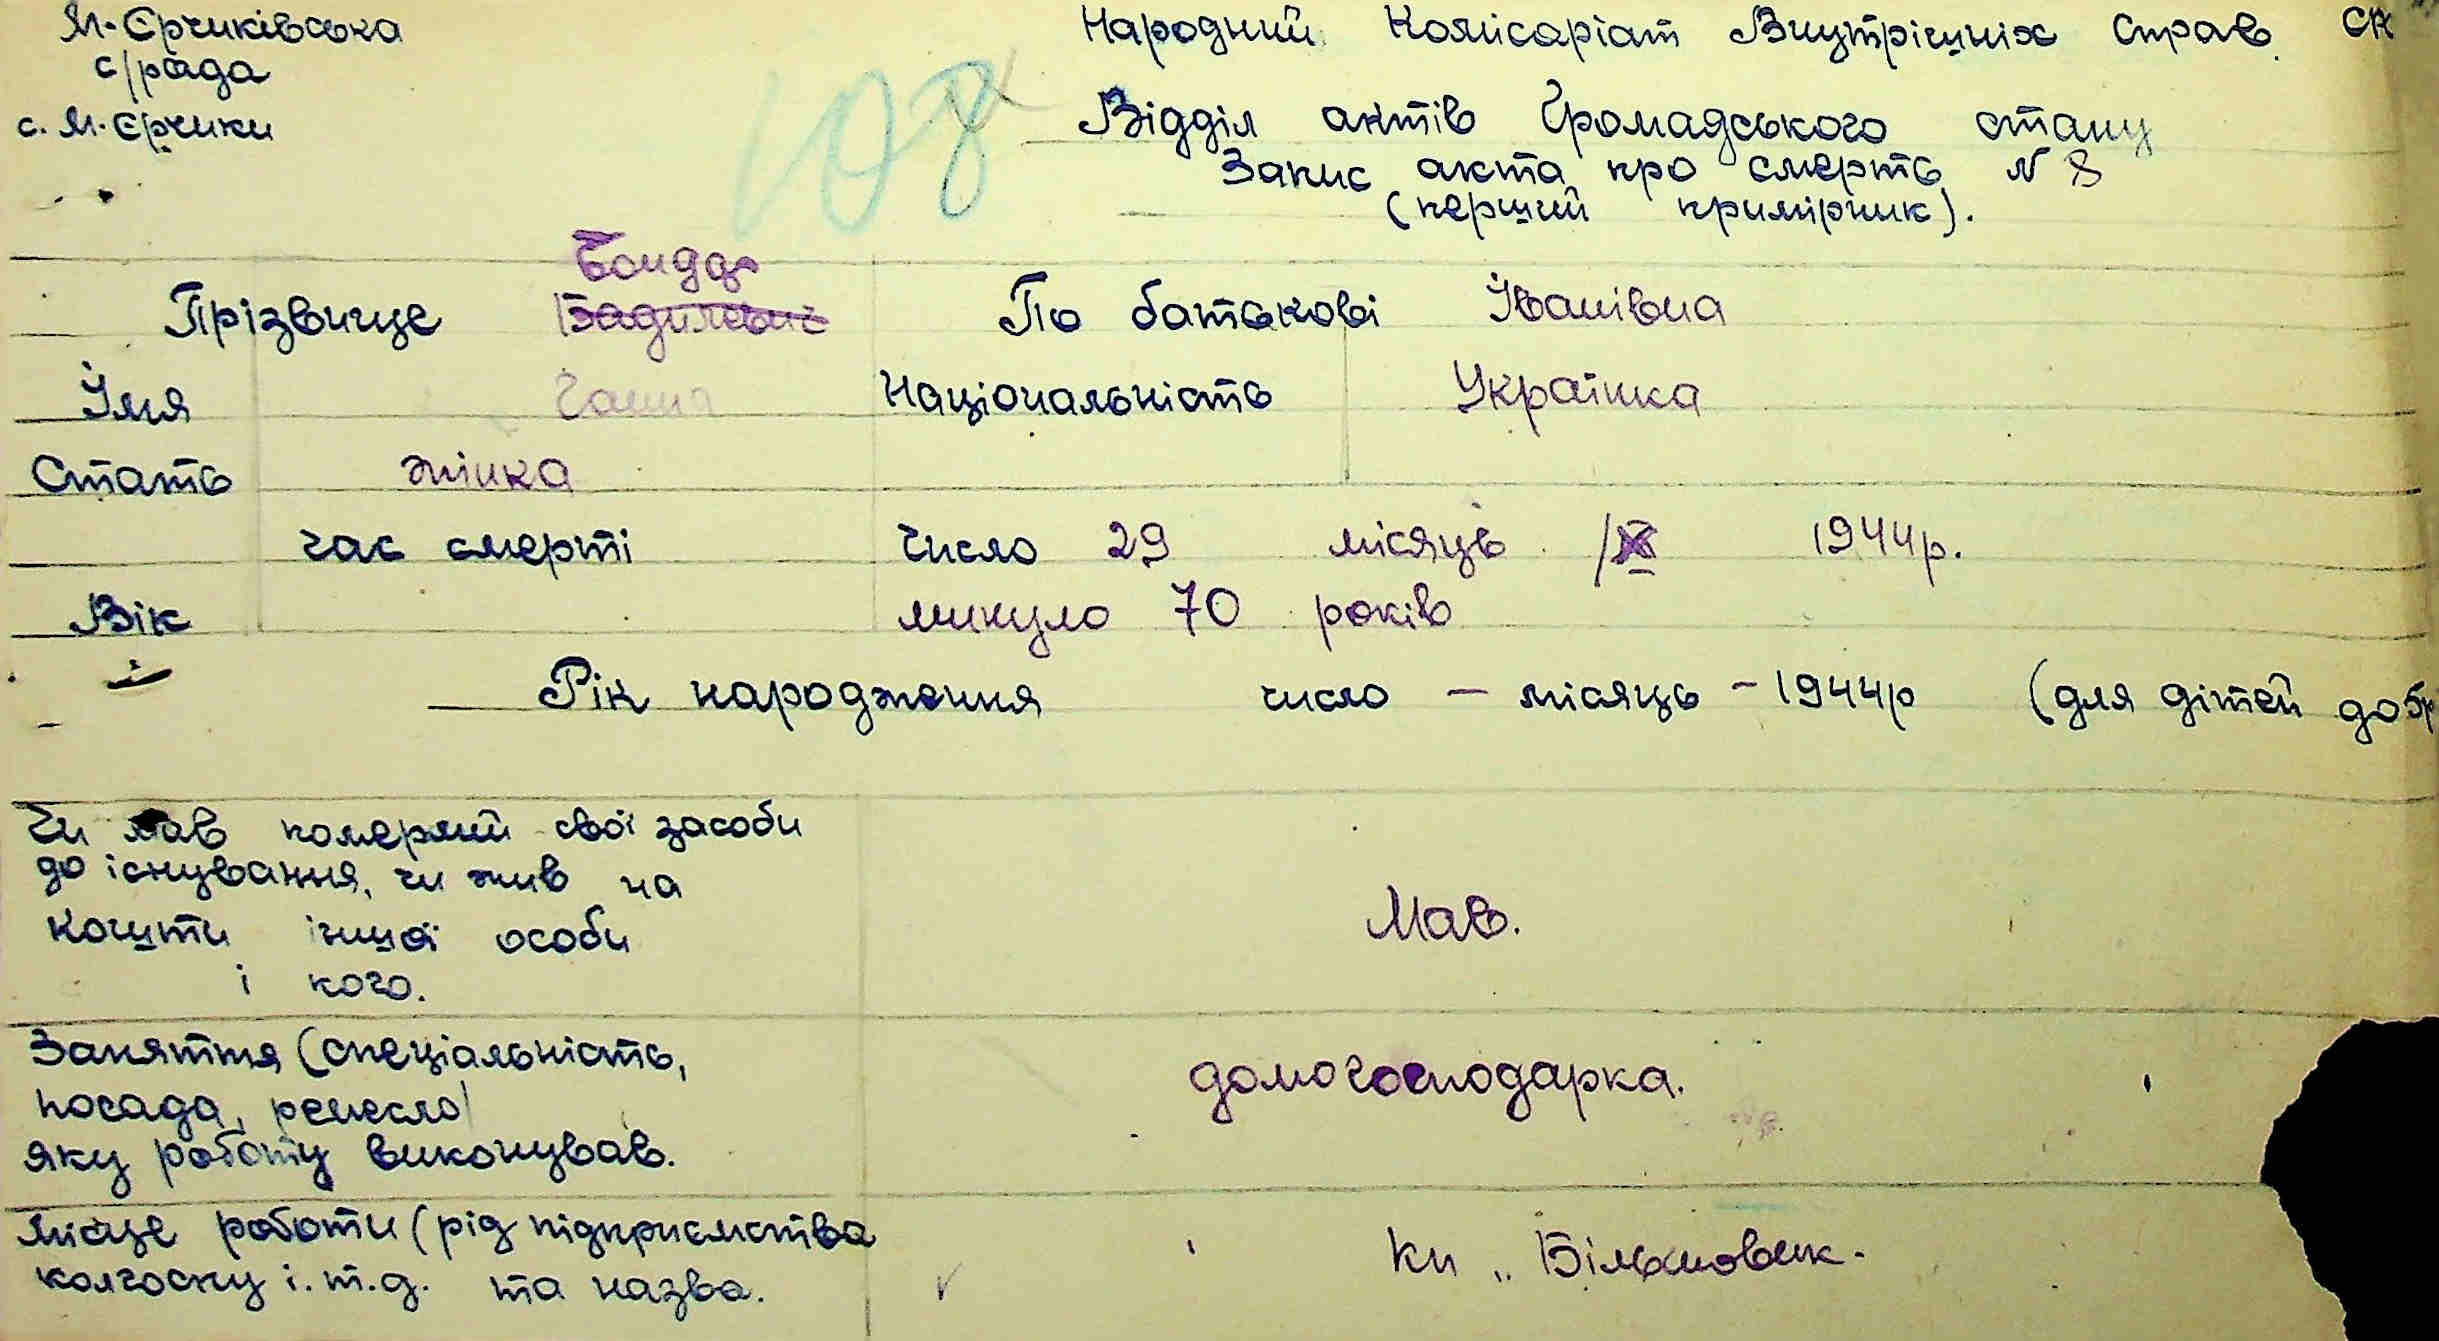 М. Єрчиківська
с/рада
с. М. Єрчики
108
Народний Комісаріат Внутрішніх Справ
Відділ актів Громадського стану
Запис акта про смерть N 8
(перший примірник).
Прізвище
По батькові Іванівна
Імя Ганна Національність Українка
Стать жінка
час смерті число 29 місяць 1944р.
Вік минуло 70 років
Рік народження число – місяць – 1944р (для дітей до
Чи мав померлий свої засоби
до існування, чи жив на
кошти іншої особи
і кого.
Мав.
Заняття (спеціальність,
посада, ремесло)
яку роботу виконував.
домогосподарка.
Місце роботи (рід підприємства
колгоспу і. т. д. та назва.
Кп „Більшовик.